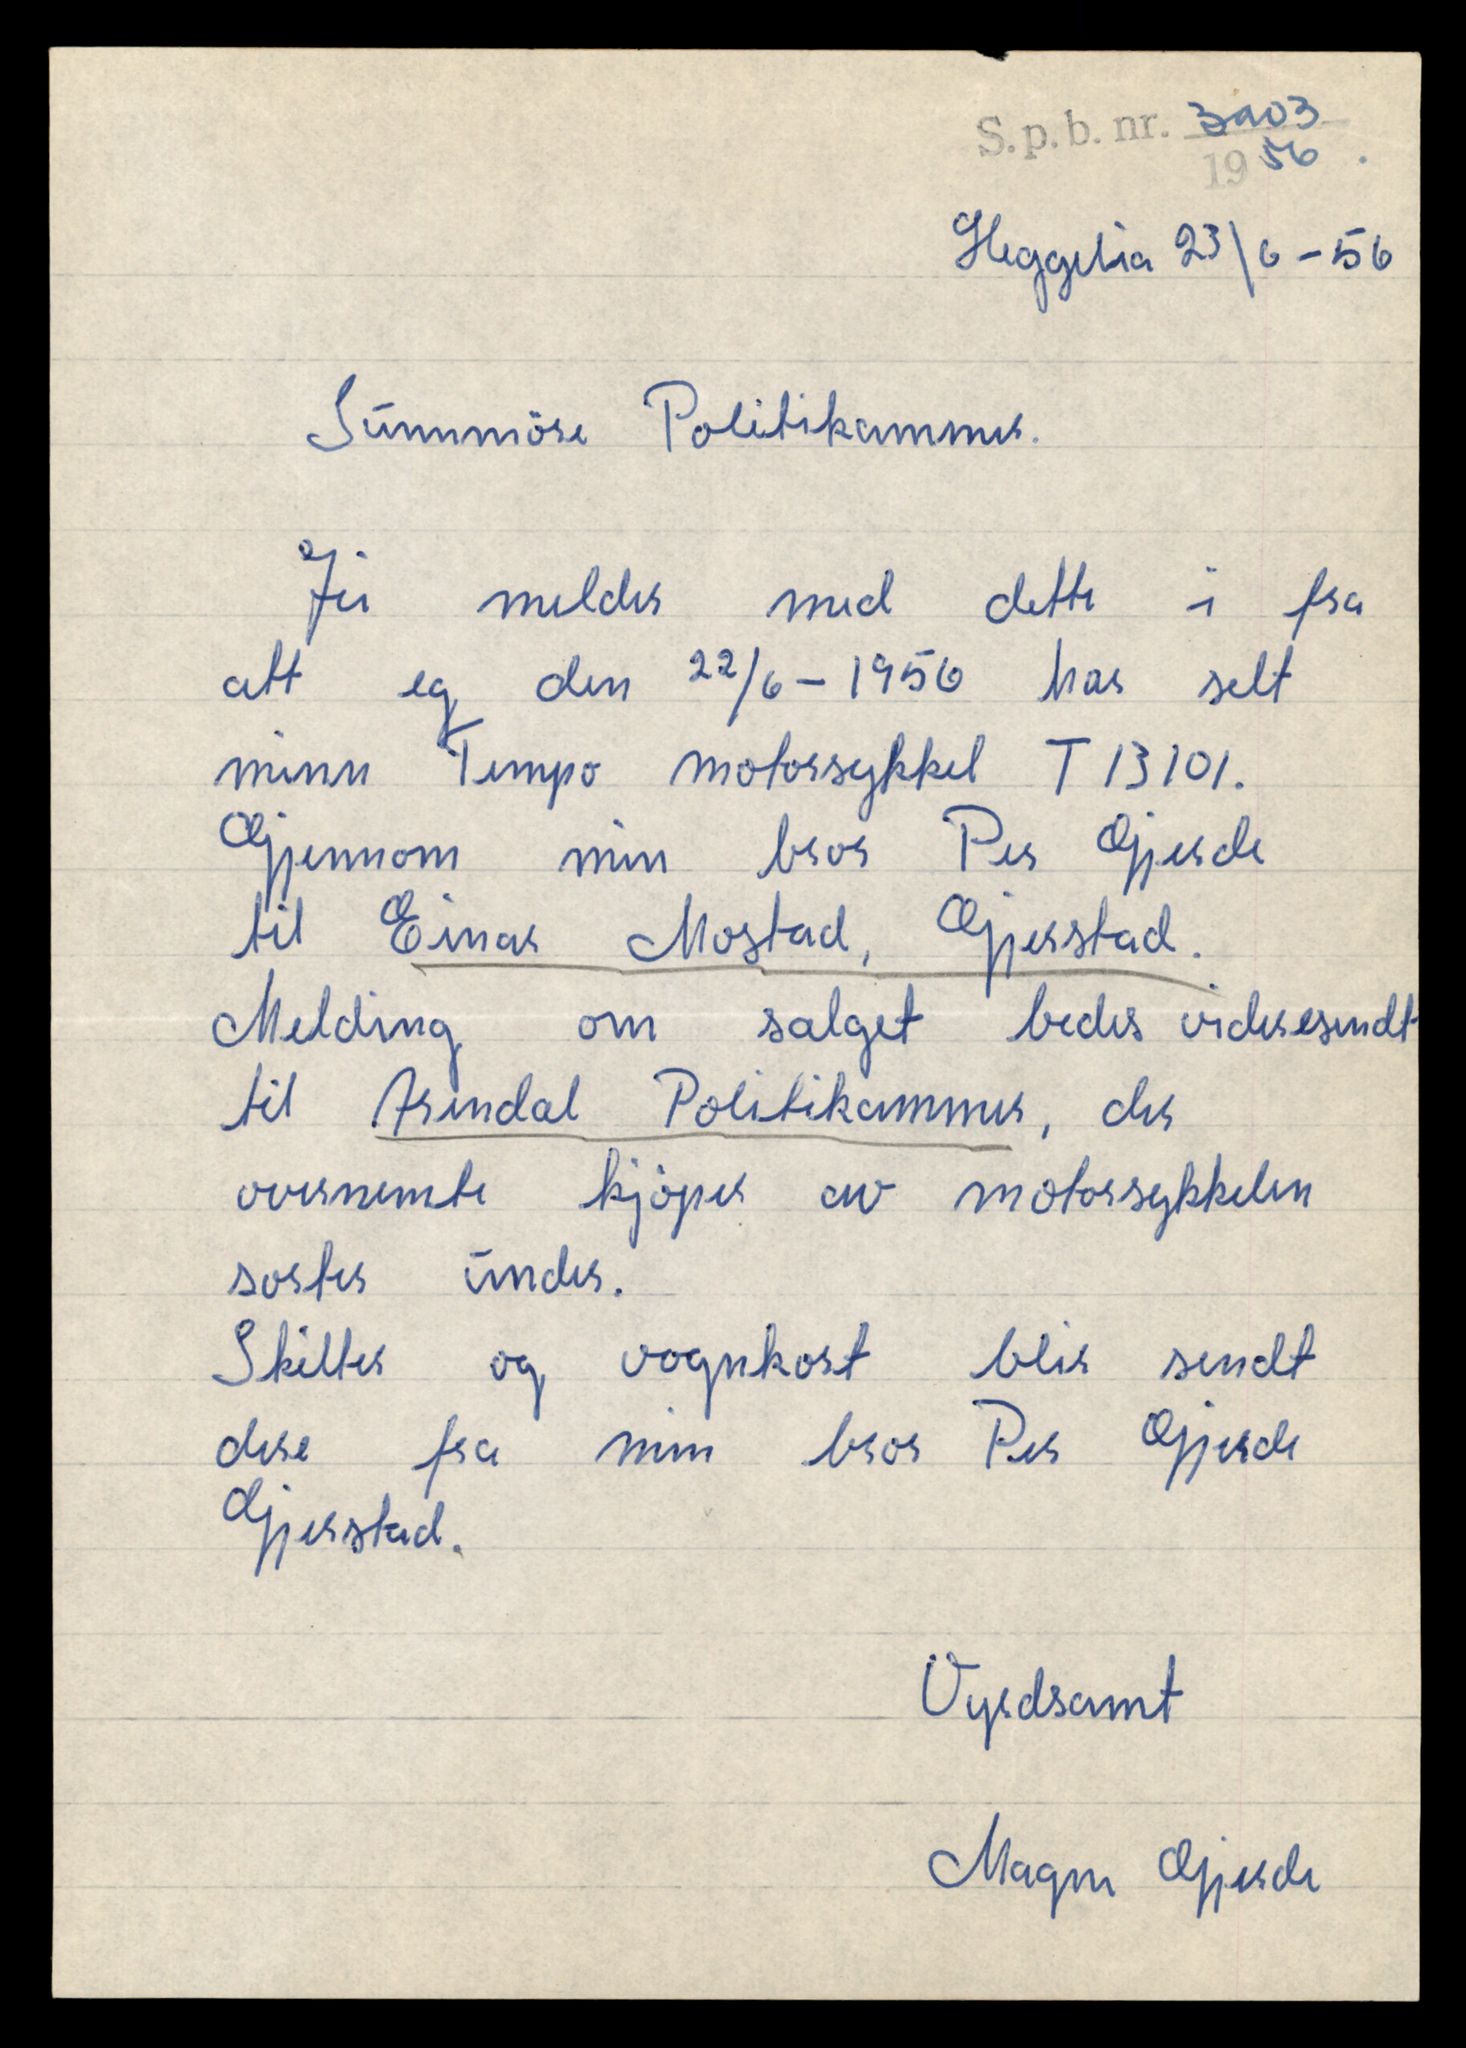 S.p.b. nr. 3903
1956.
Heggelia 23/6-56
Sunnmöre Politikammer.
Jei melder med dette i fra
att eg den 22/6-1956 har selt
minn Tempo motorsykkel T 13101.
Gjennom min bror Per Gjerde
til Einar Mostad, Gjerstad.
Melding om salget bedes videresendt
til Arendal Politikammer, der
overnemte kjöper av motorsykkelen
sorter under.
Skilter og vognkort blir sendt
dere fra min bror Per Gjerde
Gjerstad.
Vyrdsamt
Magne Gjerde